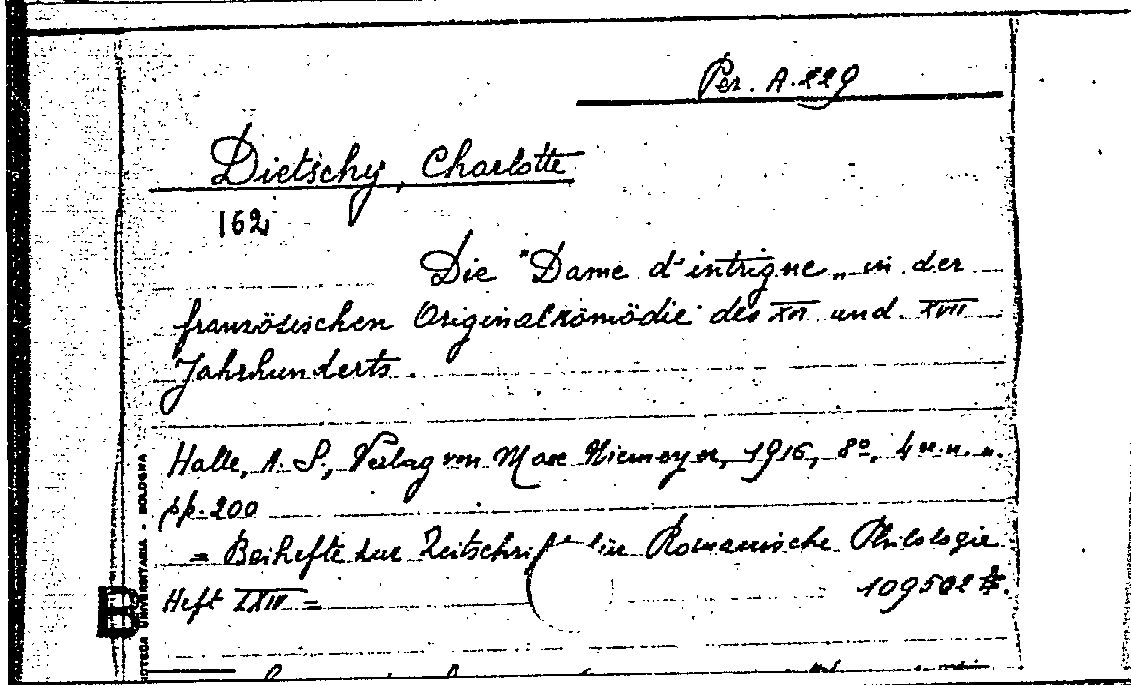 Per. A. 229
Dietschy, Charlotte
162
Die "Dame d'intrigue„ in der
französischen Originalkomödie des XVI und XVII
Jahrhunderts.
Halle, A. S., Verlag von Max Niemeyer, 1916, 8º, 4 n.n. u.
pp. 200
= Beihefte zur Zeitschrift für Romanische Philologie
Heft LXIV =
109502
BIBLIOTECA UNIVERSITARIA - BOLOGNA
B